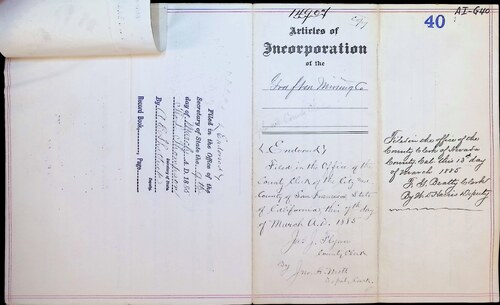 14904
Copy
40
AI-640
Articles of
Incorporation
of the
Grafton Mining Co
(Endorsed)
Filed in the Office of the
County Clerk of the City and
County of San Francisco State
of California, this 7th day
of March A.D. 1885
Jas. J. Flynn
County Clerk
By
Deputy Clerk
Filed in the office of the
County Clerk of Nevada
County Cal. this 13th day
of March 1885
F. G. Beatty Clerk
By Deputy
(Endorsed)
Filed in the Office of the
Secretary of State the 9th
day of March A. D. 1885
Secretary of State
By
Deputy
Record Book Page